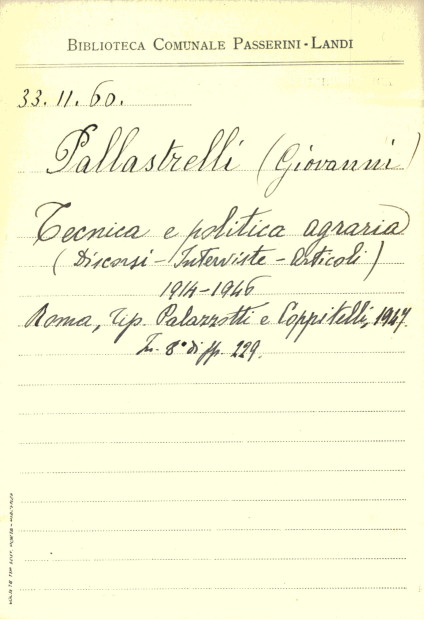 BIBLIOTECA COMUNALE PASSERINI-LANDI
33.11.60.
Pallastrelli (Giovanni)
Tecnica e politica agraria
(Discorsi - Interviste - Articoli)
1914-1946
Roma, Tip. Palazzotti e Coppitelli, 1947.
In 8° di pp. 229.